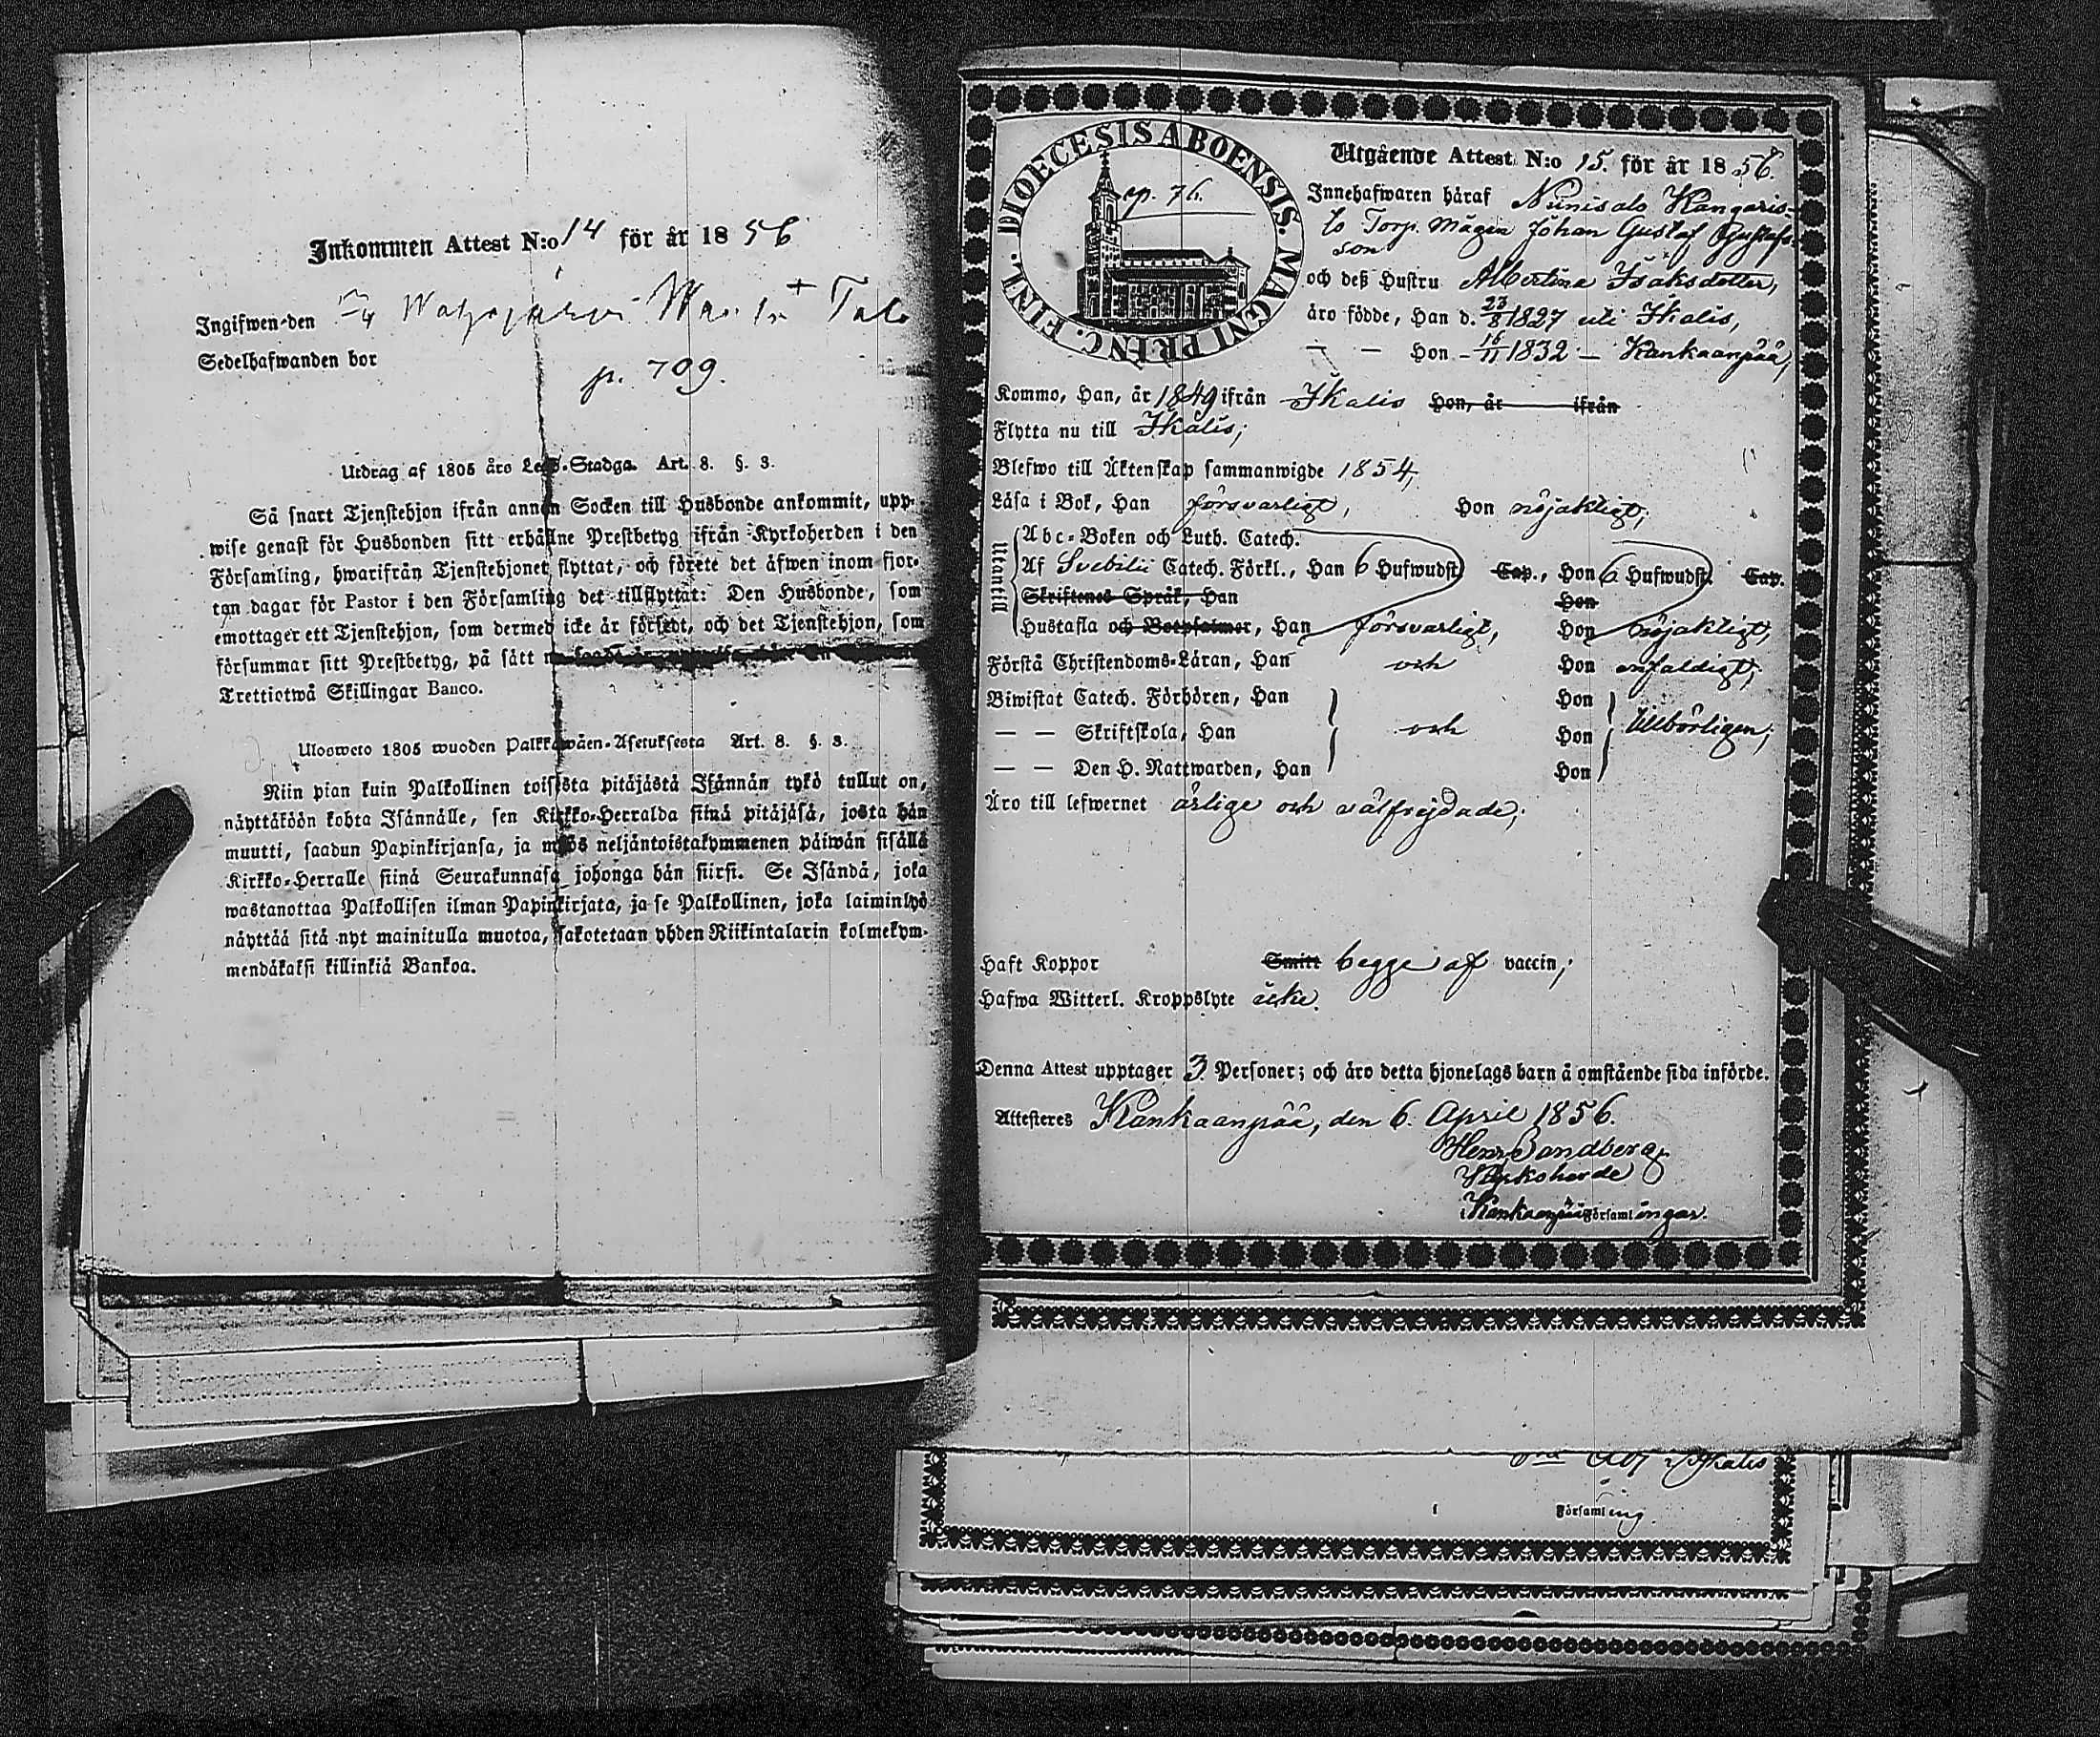 Inkommen Attest N:o 14 för år 1856
Ingifwen den
Sedelhafwanden bor
p. 709.
Utdrag af 1805 års Lego-Stadga. Art. 8. §. 3.
Så snart Tjenstehjon ifrån annan Socken till Husbonde ankommit, upp-
wise genast för Husbonden sitt erhållne Prestbetyg ifrån Kyrkoherden i den
Församling, hwarifrån Tjenstehjonet flyttat, och förete det äfwen inom fjor-
ton dagar för Pastor i den Församling det tillflyttat: Den Husbonde, som
emottager ett Tjenstehjon, som dermed icke är försedt, och det Tjenstehjon, som
försummar sitt Prestbetyg, på sätt
Trettiotwå Skillingar Banco.
Ulosweto 1805 wuoden Palkkawäen-Asetuksesta Art. 8. §. 3.
Niin pian kuin Palkollinen toisesta pitäjästä Isännän tykö tullut on,
näyttäköön kohta Isännälle, sen Kirkko-Herralda siinä pitäjäsä, josta hän
muutti, saadun Papinkirjansa, ja myös neljäntoistakymmenen päiwän sisällä
Kirkko-Herralle siinä Seurakunnasa johonga hän siirsi. Se Isändä, joka
wastanottaa Palkollisen ilman Papinkirjata, ja se Palkollinen, joka laiminlyö
näyttää sitä nyt mainitulla muotoa, sakotetaan yhden Riikintalarin kolmekym-
mendäkaksi killinkiä Bankoa.
DIOECESIS ABOENSIS. MAGNI PRINC. FINL.
ep. 76.
Utgående Attest N:o 15. för år 1856.
Innehafwaren häraf Niinisalo Kangaris-
to Torp. Mågen Johan Gustaf Gustafs-
son
och deß Hustru Albertina Isaksdotter,
äro födde, Han d. 23/8 1827 uti Ikalis,
— — Hon – 16/11 1832 – Kankaanpää,
Kommo, Han, år 1849 ifrån Ikalis Hon, år ifrån
Flytta nu till Ikalis;
Blefwo till Äktenskap sammanwigde 1854,
Läsa i Bok, Han försvarligt, Hon nöjaktigt;
Utantill
Abc-Boken och Luth. Catech.
Af Svebilii Catech. Förkl., Han 6 Hufwudst. Cap., Hon 6 Hufwudst. Cap.
Skriftenes Språk, Han Hon
Hustafla och Botpsalmer, Han försvarligt, Hon nöjaktigt,
Förstå Christendoms-Läran, Han och Hon enfaldigt;
Biwistat Catech. Förhören, Han Hon
— — Skriftskola, Han och Hon tillbörligen;
— — Den H. Nattwarden, Han Hon
Äro till lefwernet ärlige och välfrejdade;
Haft Koppor Smitt begge af vaccin;
Hafwa Witterl. Kroppslyte icke.
Denna Attest upptager 3 Personer; och äro detta hjonelags barn å omstående sida införde.
Attesteres Kankaanpää, den 6. April 1856.
Henr. Sandberg
Kyrkoherde
i Kankaanpää Församlingar.
Ikalis
i Församling.